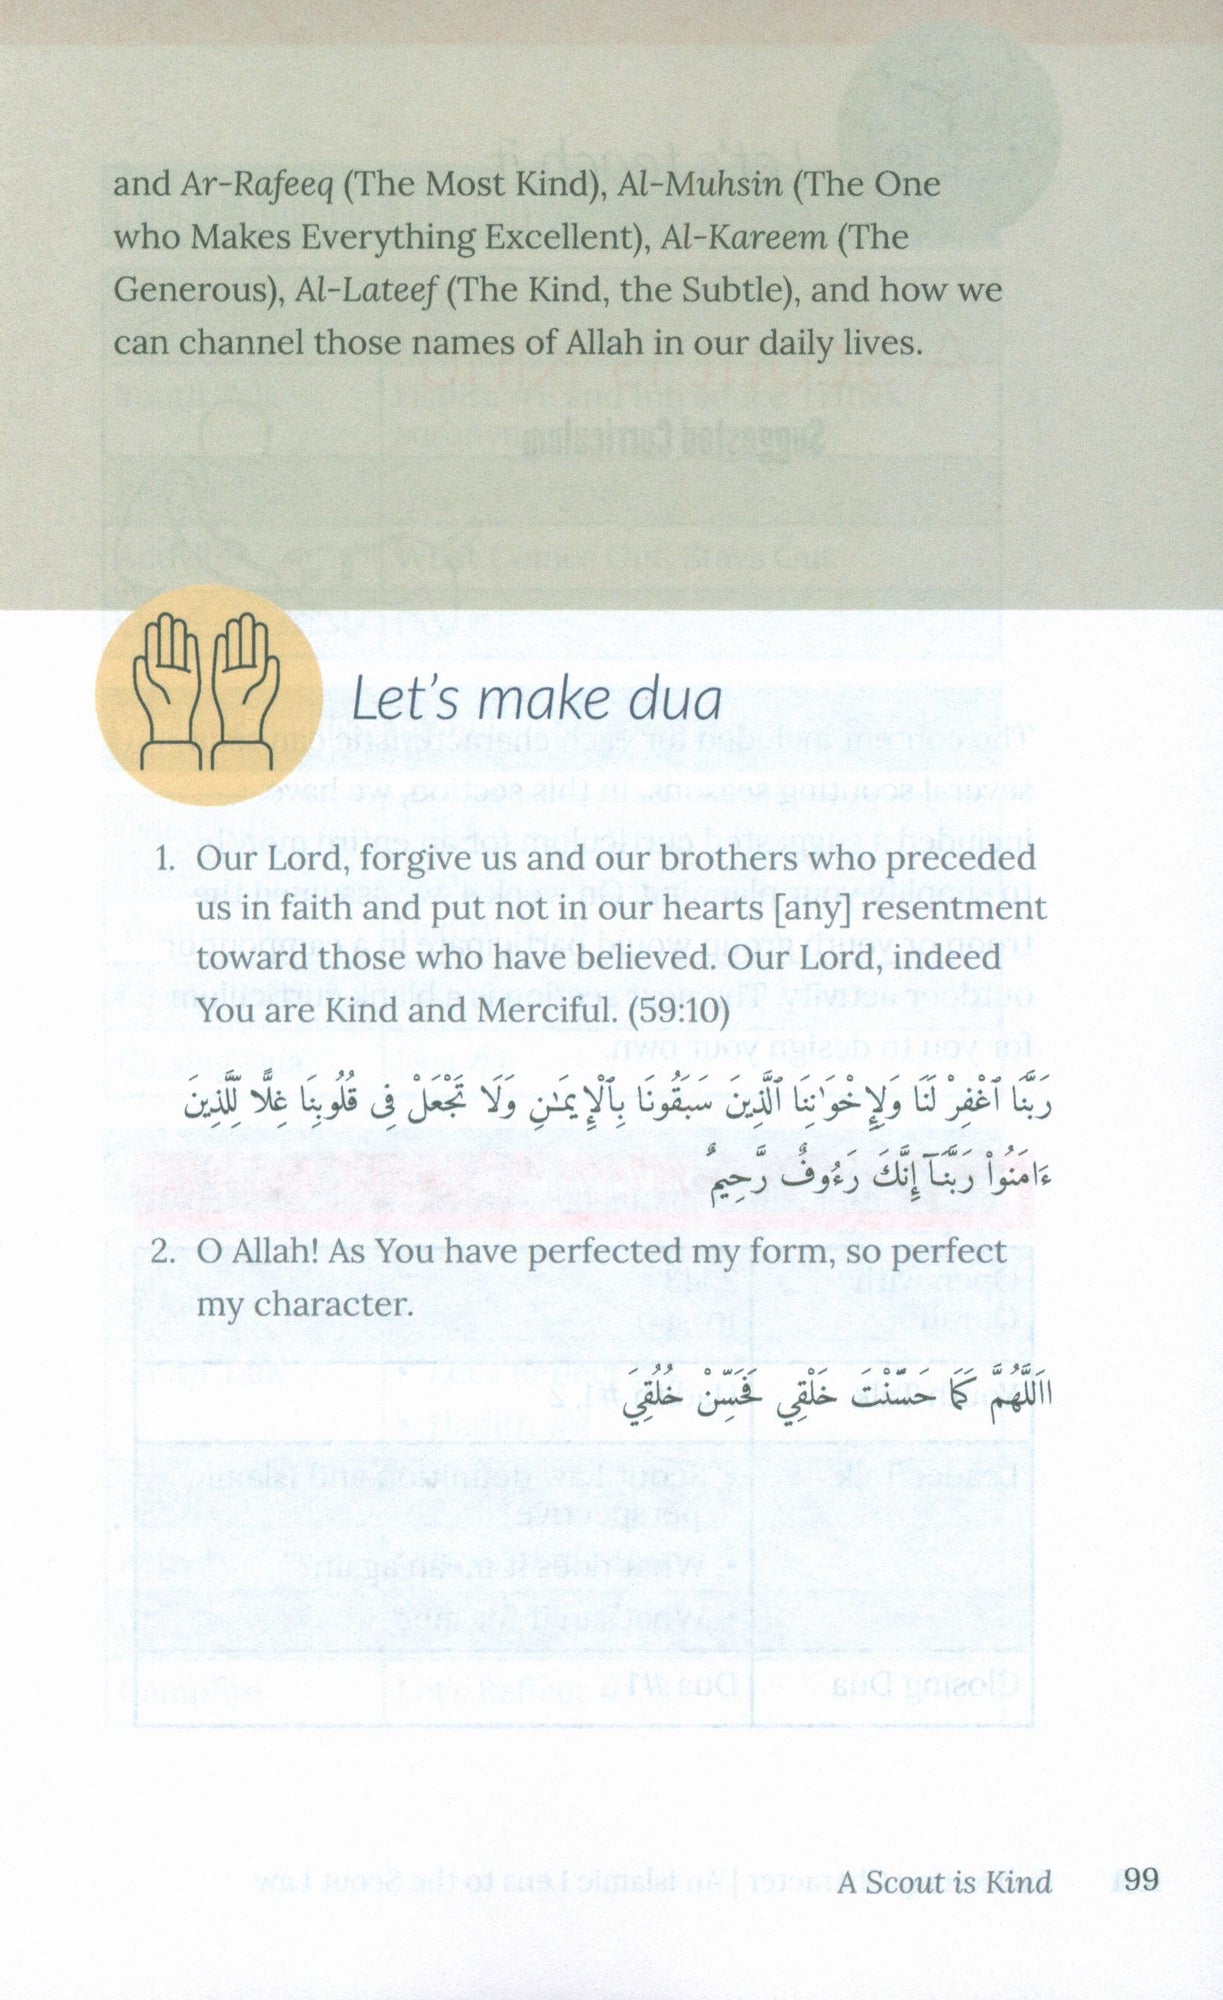 and Ar-Rafeeq (The Most Kind), Al-Muhsin (The One
who Makes Everything Excellent), Al-Kareem (The
Generous), Al-Lateef (The Kind, the Subtle), and how we
can channel those names of Allah in our daily lives.
Let's make dua
1. Our Lord, forgive us and our brothers who preceded
us in faith and put not in our hearts [any] resentment
toward those who have believed. Our Lord, indeed
You are Kind and Merciful. (59:10)
رَبَّنَا ٱغْفِرْ لَنَا وَلِإِخْوَٰنِنَا ٱلَّذِينَ سَبَقُونَا بِٱلْإِيمَـٰنِ وَلَا تَجْعَلْ فِى قُلُوبِنَا غِلًّا لِّلَّذِينَ
ءَامَنُوا۟ رَبَّنَآ إِنَّكَ رَءُوفٌ رَّحِيمٌ
2. O Allah! As You have perfected my form, so perfect
my character.
ااَللَّهُمَّ كَمَا حَسَّنْتَ خَلْقِي فَحَسِّنْ خُلُقِيَ
A Scout is Kind 99